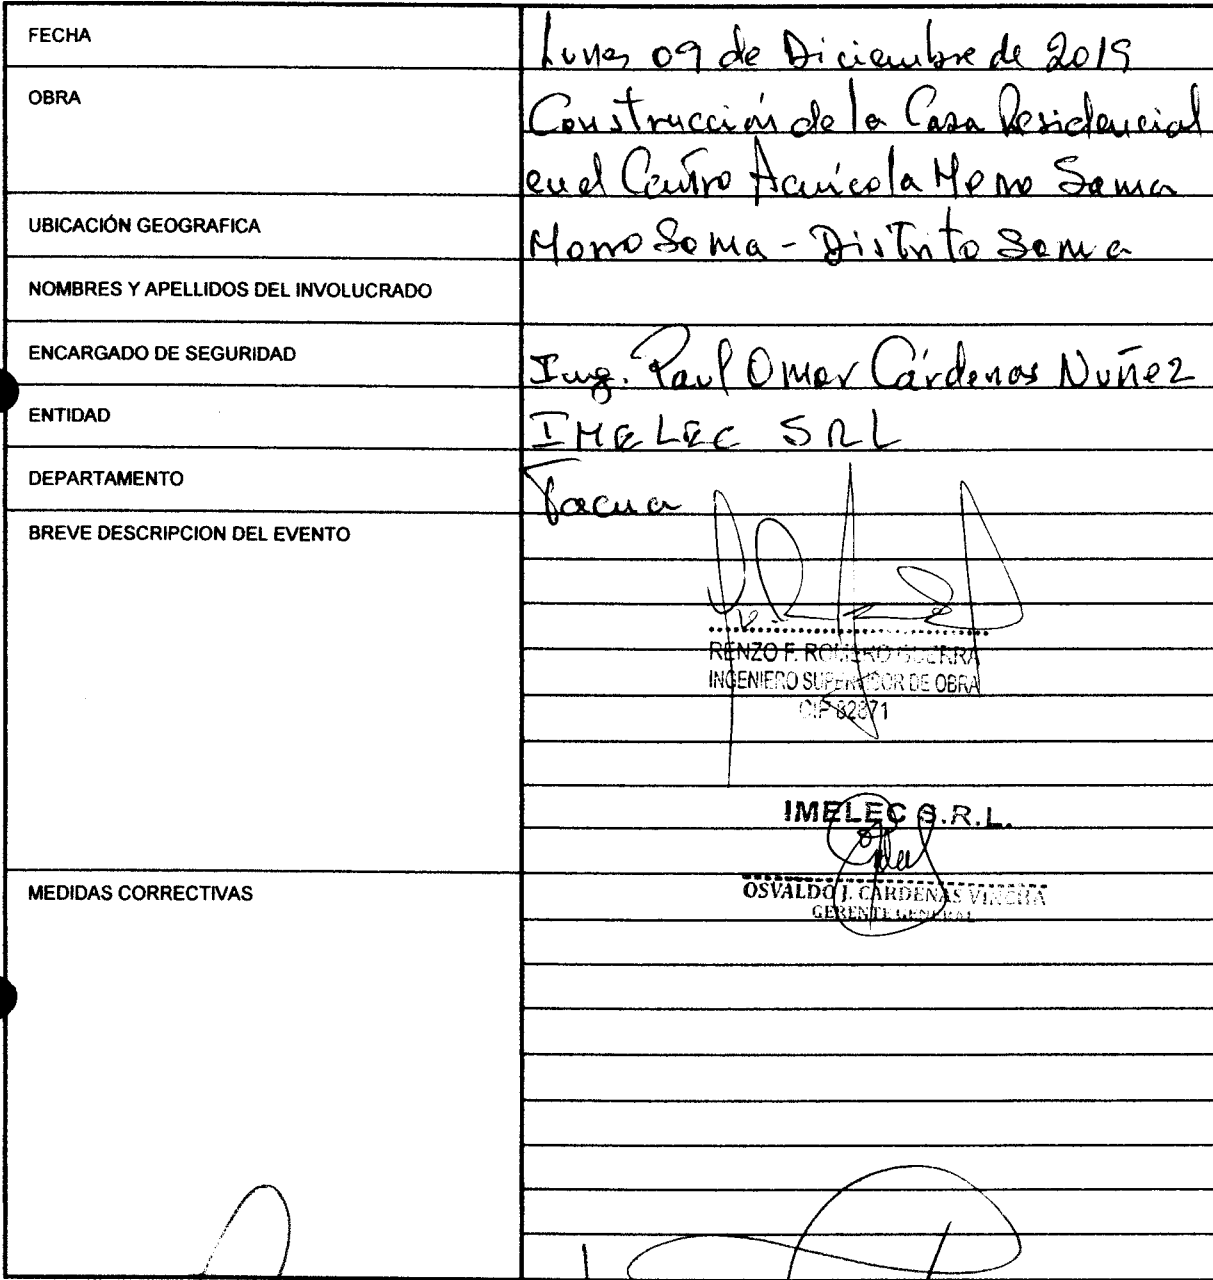 FECHA
Lunes 09 de Diciembre de 2019
OBRA
Construcción de la Casa Residencial
en el Centro Acuícola Morro Sama
UBICACIÓN GEOGRAFICA
Morro Sama - Distrito Sama
NOMBRES Y APELLIDOS DEL INVOLUCRADO
ENCARGADO DE SEGURIDAD
Ing. Paul Omar Cárdenas Nuñez
ENTIDAD
IMELEC SRL
DEPARTAMENTO
Tacna
BREVE DESCRIPCION DEL EVENTO
RENZO F. ROMERO GUERRA
INGENIERO SUPERVISOR DE OBRA
CIP 82871
IMELEC S.R.L.
MEDIDAS CORRECTIVAS
OSVALDO J. CARDENAS VINCHA
GERENTE GENERAL